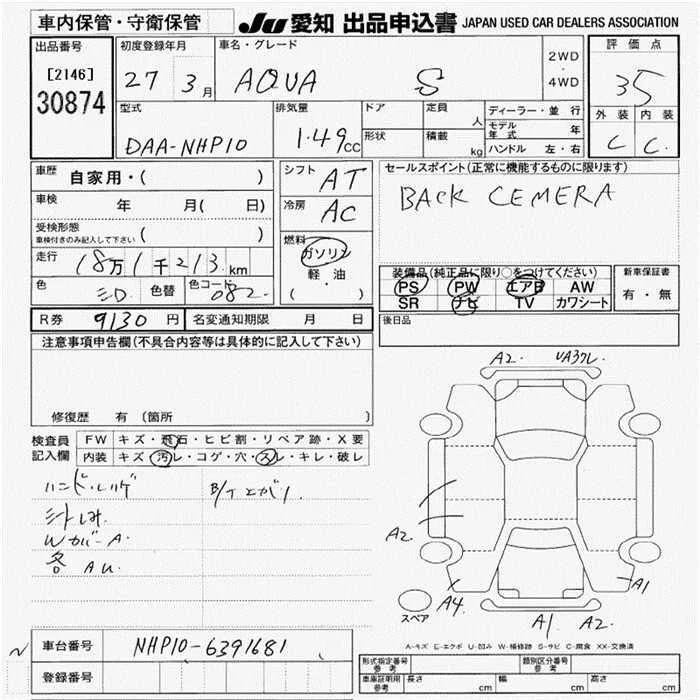 車内保管・守衛保管
JU 愛知 出品申込書 JAPAN USED CAR DEALERS ASSOCIATION
出品番号
[2146]
30874
初度登録年月
27 3月
車名・グレード
AQUA S
2WD
・
4WD
評価点
35
外装 内装
C C
型式
DAA-NHP10
排気量
1.49cc
ドア
形状
定員 人
積載 kg
ディーラー・並行
モデル年式 年
ハンドル 左・右
車歴 自家用・( )
車検 年 月( 日)
受検形態
車検付きのみ記入して下さい ( )
走行 18万1千213km
色 ミD. 色替 色コード 082.
シフト AT
冷房 AC
燃料
ガソリン
軽・油
( )
セールスポイント(正常に機能するものに限ります)
BACK CEMERA
装備品(純正品に限り○をつけてください)
PS PW エアB AW
SR ナビ TV カワシート
新車保証書
有・無
R券 9130円 名変通知期限 月 日
後日品
注意事項申告欄(不具合内容等は具体的に記入して下さい)
修復歴 有 (箇所
検査員記入欄
FW キズ・飛石・ヒビ割・リペア跡・X要
内装 キズ・汚レ・コゲ・穴・スレ・キレ・破レ
ハンドルハゲ
B/T エガリ
シートしみ
Wカバー A.
各 AU.
A2. UA3クレ.
A2.
A4.
A1
A1 A2.
スペア
A-キズ E-エクボ U-凹み W-補修跡 S-サビ C-腐食 XX-交換済
車台番号 NHP10-6391681
登録番号
型式指定番号 参考
類別区分番号 参考
車庫証明用 参考 長さ cm 幅 cm 高さ cm